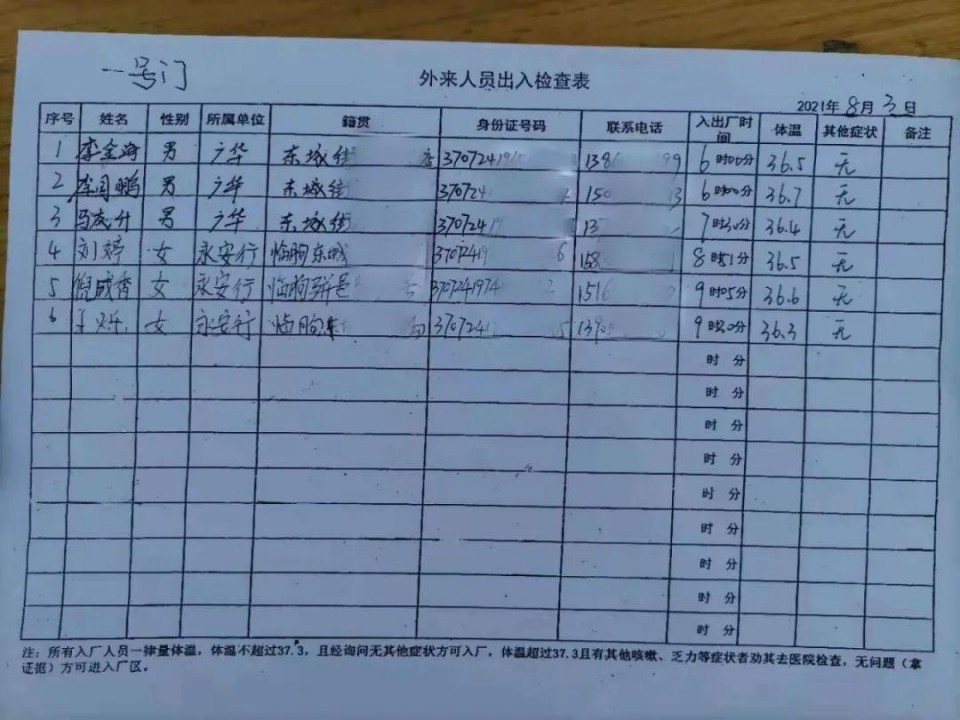 一号门
外来人员出入检查表
2021年8月3日
序号 姓名 性别 所属单位 籍贯 身份证号码 联系电话 入出厂时间 体温 其他症状 备注
1 李宝海 男 广华 东城街 3707241 138 99 6时00分 36.5 无
2 鹏 男 广华 东城街 370724 150 3 6时00分 36.7 无
3 马 升 男 广华 东城街 3707241 13 7时30分 36.4 无
4 刘婷 女 永安行 临朐东城 37072419 6 158 8时51分 36.5 无
5 倪 香 女 永安行 临朐 5 370724197 2 1516 9时05分 36.6 无
6 女 永安行 临朐 3707241 5 139 9时20分 36.3 无
时 分
时 分
时 分
时 分
时 分
时 分
时 分
时 分
时 分
注：所有入厂人员一律量体温，体温不超过37.3，且经询问无其他症状方可入厂，体温超过37.3且有其他咳嗽、乏力等症状者劝其去医院检查，无问题（拿
证据）方可进入厂区。